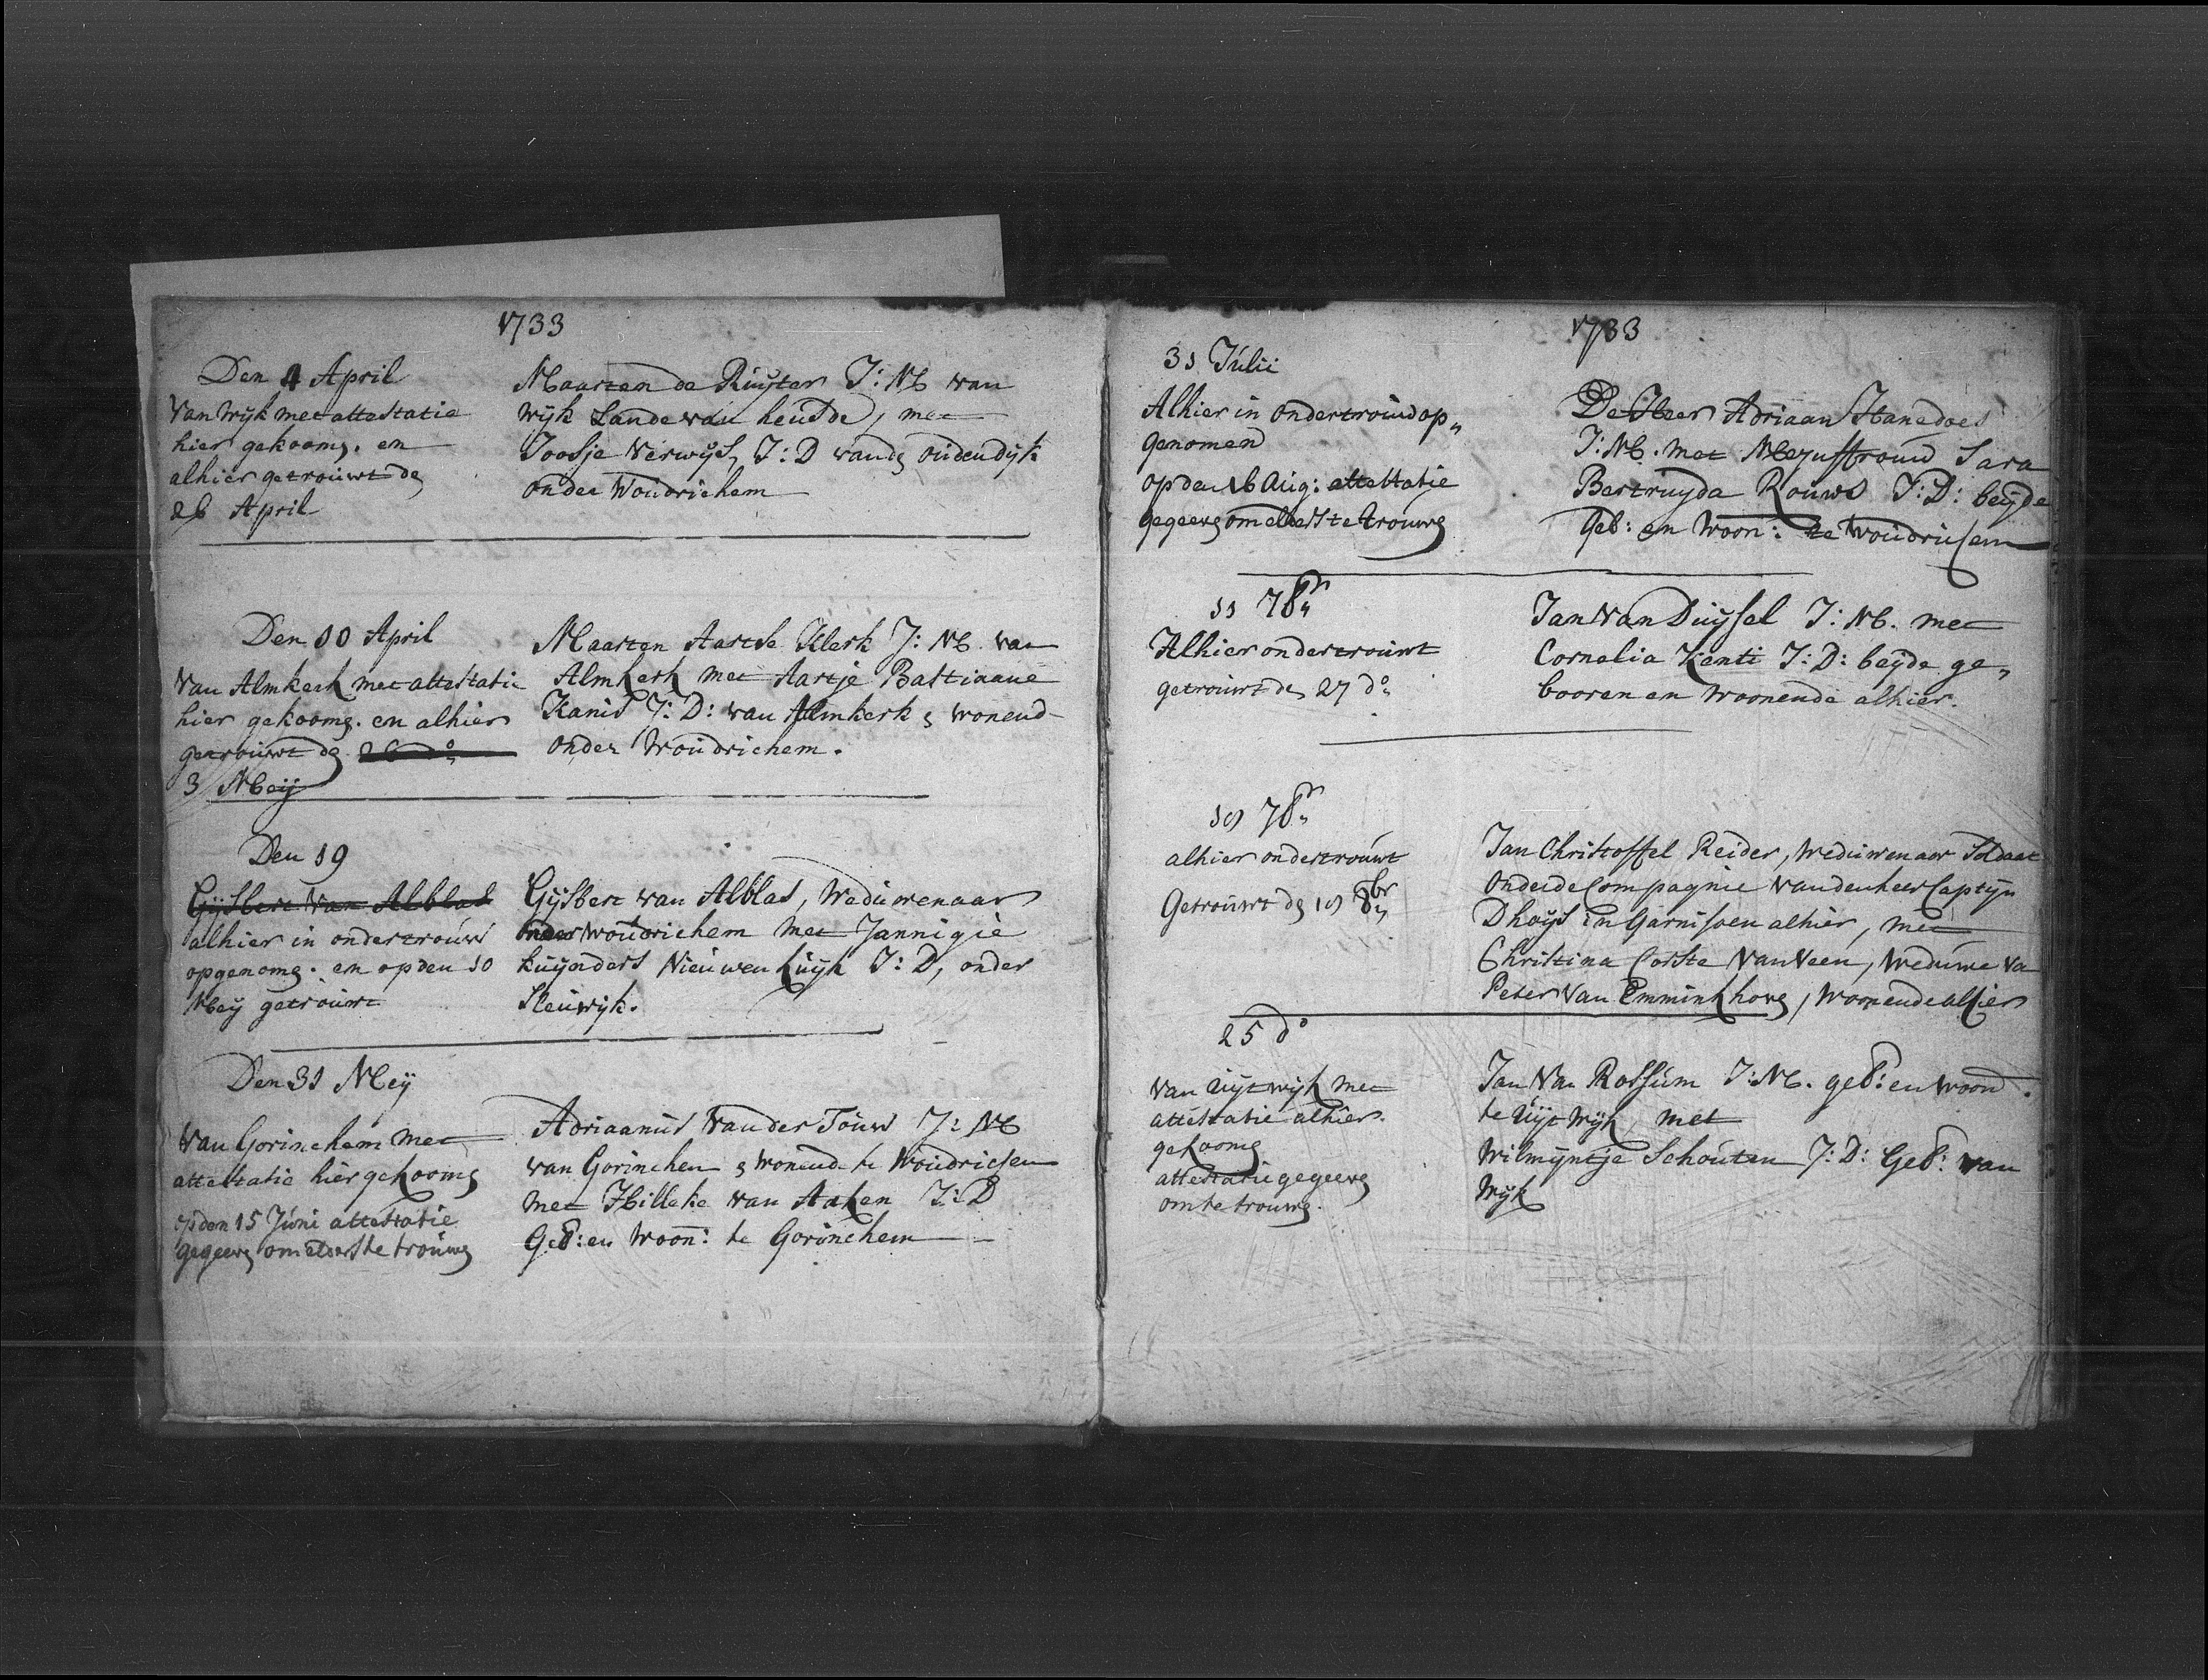 1733
Den 4 April
Van Wijk met attestatie
hier gekoomen. en
alhier getrouwt den
26 April
Maarten de Ruijter J: M van
Wijk Lande van heusde, met
Joosje Verwijs, J: D vanden oudendijk
onder Woudrichem
Den 10 April
Van Almkerk met attestatie
hier gekoomen. en alhier
getrouwt den 26 do
3 Meij
Maarten Aartse Klerk J: M. van
Almkerk met Aartje Bastiaane
Kanis J: D: van Almkerk, wonend
onder Woudrichem.
Den 19
Gijsbert Van Alblas
alhier in ondertrouw
opgenomen. en op den 10
Meij getrouwt
Gijsbert van Alblas, Weduwenaar
onder Woudrichem met Jannigje
kuijnders Nieuwenkuijk J: D, onder
Sleuwijk.
Den 31 Meij
Van Gorinchem met
attestatie hier gekoomen
op den 15 Juni attestatie
gegeven om elders te trouwen
Adriaanus Van der Touw J: M
van Gorinchem, wonend te Woudrichem
met Hilleke van Aaken J: D
Geb: en Woon: te Gorinchem
1733
31 Julii
Alhier in ondertrouw op„
genomen
op den 16 Aug: attestatie
gegeven om elders te trouwen
De Heer Adriaan Hanedoes
J: M. met Mejuffrouw Sara
Bertruyda Rouws J: D: beijde
Geb: en Woon: te Woudrichem
11 7br
Alhier ondertrouwt
getrouwt den 27 do
Jan Van Duijsel J: M. met
Cornelia Kenti J: D: beijde ge„
booren en Woonende alhier.
19 7br
alhier ondertrouwt
Getrouwt den 19 8br
Jan Christoffel Reider, Weduwenaar Soldaat
onder de Compagnie van den heer Captijn
Dhoijs in Garnisoen alhier, met
Christina Corste Van Veen, Weduwe Va
Peter Van Emminkhoven, Woonende alhier
25 do
Van Uijtwijk met
attestatie alhier.
gekoomen
attestatie gegeeven
om te trouwen.
Jan Van Rossum J: M. geb: en woond.
te Uijtwijk, met
Wilmijntje Schouten J: D: Geb: van
Wijk